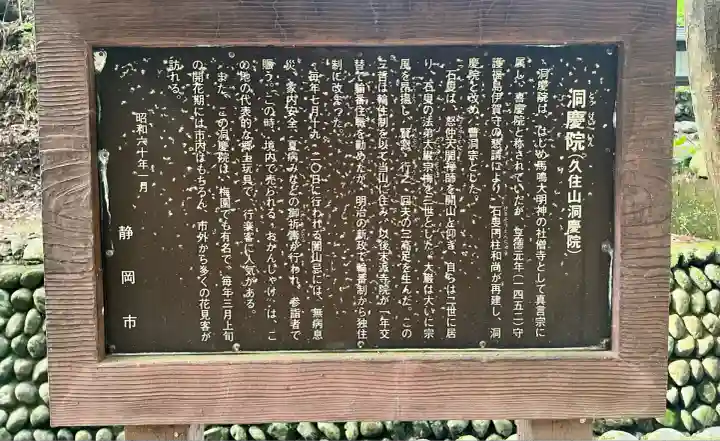 洞慶院(久住山洞慶院)
とうけいいん
洞慶院は、はじめ馬鳴大明神の社僧寺として真言宗に
属し、喜慶院と称されていたが、享徳元年(一四五二)守
護福島伊賀守の懇請により、石叟円柱和尚が再建し、洞
慶院と改め、曹洞宗とした。
石叟は、恕仲天誾禅師を開山と仰ぎ、自らは二世に居
り、石叟の法弟大巌宗梅を三世とした。大巌は大いに宗
風を昂揚し、賢窓、行之、回夫の三高足を生んだ。この
三哲は輪番制を以て当山に住み、以後末派寺院が一年交
替で輪番住職を勤めたが、明治の新政で輪番制から独住
制に改まった。
毎年七月十九、二〇日に行われる開山忌には、無病息
災、家内安全、夏病みなどの御祈禱が行われ、参詣者で
賑う。この時、境内で売られる「おかんじゃけ」は、こ
の地の代表的な郷土玩具で、行楽客に人気がある。
また、この洞慶院は、梅園でも有名で、毎年三月上旬
の開花期には市内はもちろん、市外から多くの花見客が
訪れる。
昭和六十年一月
静岡市